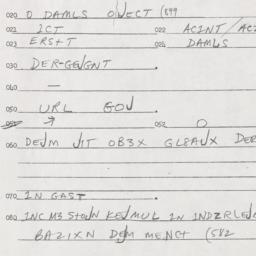 020 O DAMLS OVECT (899
021 ICT 022 ACINT/AC
023 ERST 024 DAMLS
030 DER-GEVGNT.
040 —
050 URL GOV
052 O
060 DEJM JIT OB3X GL8AJX DER
070 IN GAST.
080 INC M3 STOJN KEJMUL IN INDZRLEJ
BAZIXN DEJM MENCT (582